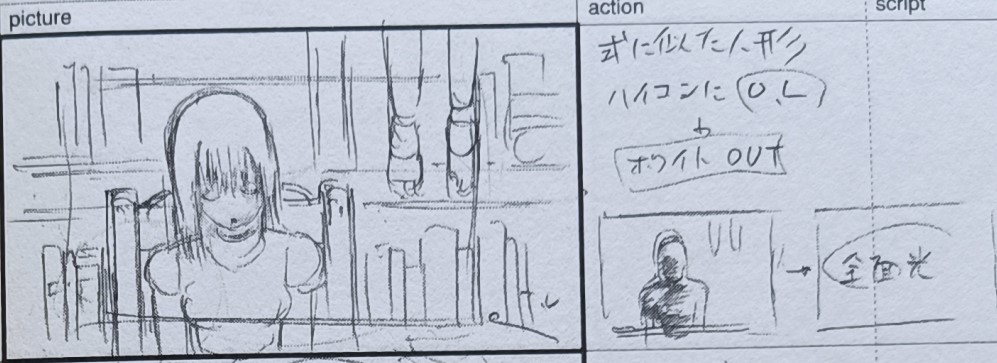 picture
action
script
式に似た人形
ハイコンに O.L
↓
ホワイト OUT
→
全面光